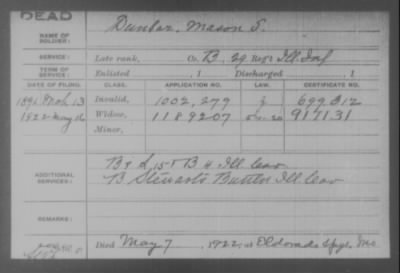 DEAD
NAME OF SOLDIER: Dunbar, Mason S.
SERVICE: Late rank, Co. B, 29 Reg't Ill. Inf
TERM OF SERVICE: Enlisted , 1 Discharged , 1
DATE OF FILING. CLASS. APPLICATION NO. LAW. CERTIFICATE NO.
1891 Mch 13 Invalid, 1002,279 699.812
1922 May 16 Widow, 1189207 917131
Minor,
ADDITIONAL SERVICES: B & 15 B 4 Ill Cav
B Stewarts Battn Ill Cav
REMARKS:
Died May 7, 1922, at Eldorado Spgs. Mo